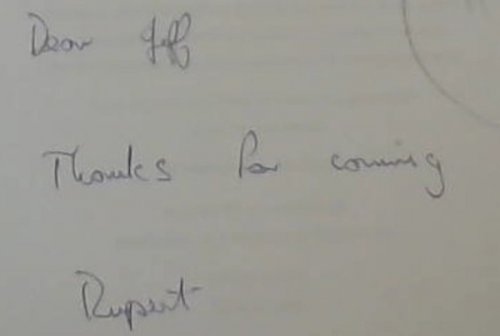 Dear Jeff
Thanks for coming
Rupert